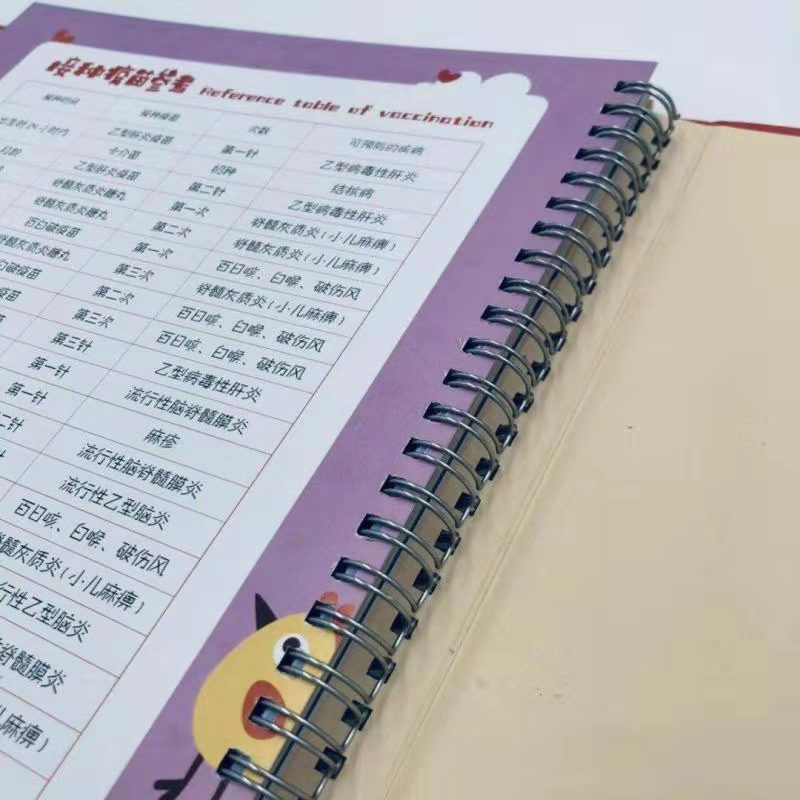 接种疫苗参考 Reference table of vaccination
接种时间 接种疫苗 次数 可预防的疾病
生时24小时内 乙型肝炎疫苗 第一针 乙型病毒性肝炎
卡介苗 初种 结核病
月龄 乙型肝炎疫苗 第二针 乙型病毒性肝炎
脊髓灰质炎糖丸 第一次 脊髓灰质炎(小儿麻痹)
脊髓灰质炎糖丸 第二次 脊髓灰质炎(小儿麻痹)
百白破疫苗 第一次 百日咳、白喉、破伤风
脊髓灰质炎糖丸 第三次 脊髓灰质炎(小儿麻痹)
白破疫苗 第二次 百日咳、白喉、破伤风
疫苗 第三次 百日咳、白喉、破伤风
第三针 乙型病毒性肝炎
第一针 流行性脑脊髓膜炎
第一针 麻疹
二针 流行性脑脊髓膜炎
针 流行性乙型脑炎
百日咳、白喉、破伤风
髓灰质炎(小儿麻痹)
行性乙型脑炎
脊髓膜炎
儿麻痹)